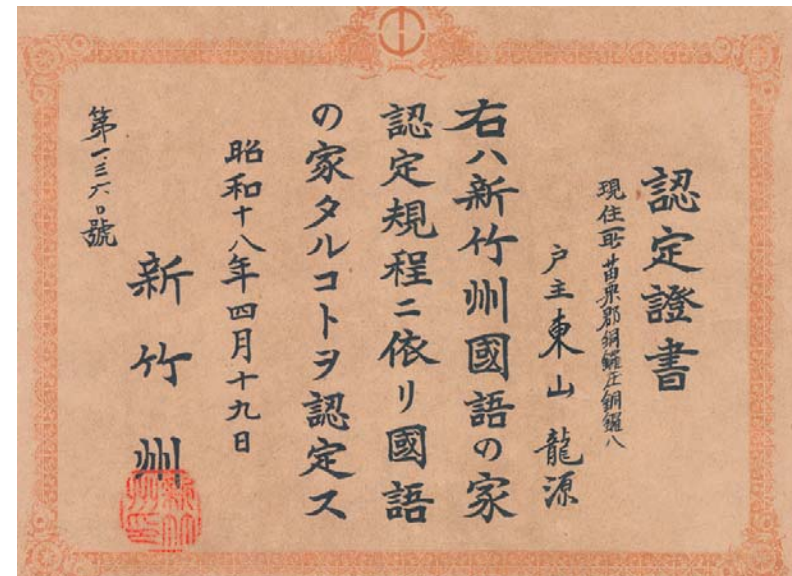 認定證書
現住所 苗栗郡銅鑼庄銅鑼八
戸主 東山龍源
右ハ新竹州國語の家
認定規程ニ依リ國語
の家タルコトヲ認定ス
昭和十八年四月十九日
新竹州
新竹州印
第一三六〇號